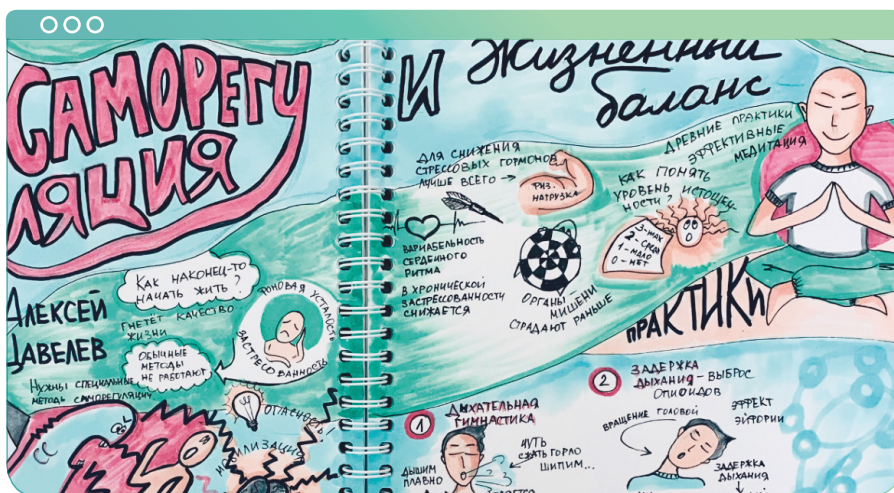 САМОРЕГУ
ЛЯЦИЯ
АЛЕКСЕЙ
ЦАВЕЛЕВ
КАК НАКОНЕЦ-ТО
НАЧАТЬ ЖИТЬ?
ГНЕТЁТ КАЧЕСТВО
ЖИЗНИ
ОБЫЧНЫЕ
МЕТОДЫ
НЕ РАБОТАЮТ
ФОНОВАЯ УСТАЛОСТЬ
ЗАСТРЕССОВАННОСТЬ
НУЖНЫ СПЕЦИАЛЬНЫЕ
МЕТОДЫ САМОРЕГУЛЯЦИИ
ОПАСНОСТЬ!
И Жизненный
баланс
ДЛЯ СНИЖЕНИЯ
СТРЕССОВЫХ ГОРМОНОВ
ЛУЧШЕ ВСЕГО →
ФИЗ.
НАГРУЗКА
ВАРИАБЕЛЬНОСТЬ
СЕРДЕЧНОГО
РИТМА
В ХРОНИЧЕСКОЙ
ЗАСТРЕССОВАННОСТИ
СНИЖАЕТСЯ
ОРГАНЫ
МИШЕНИ
СТРАДАЮТ РАНЬШЕ
КАК ПОНЯТЬ
УРОВЕНЬ ИСТОЩЕН-
НОСТИ?
3-МАХ
2-СРЕДН
1-МАЛО
0-НЕТ
ДРЕВНИЕ ПРАКТИКИ
ЭФФЕКТИВНЫЕ
МЕДИТАЦИЯ
ПРАКТИКИ
1 ДЫХАТЕЛЬНАЯ
ГИМНАСТИКА
ДЫШИМ
ПЛАВНО
ЧУТЬ
СЖАТЬ ГОРЛО
ШИПИМ...
2 ЗАДЕРЖКА
ДЫХАНИЯ - ВЫБРОС
ОПИОИДОВ
ВРАЩЕНИЕ ГОЛОВОЙ
ЭФФЕКТ
ЭЙФОРИИ
ЗАДЕРЖКА
ДЫХАНИЯ